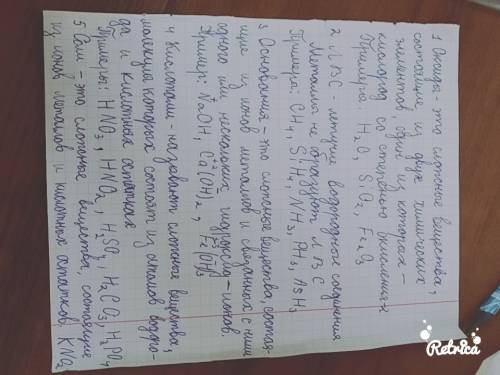 1 Оксиды - это сложные вещества,
состоящие из двух химических
элементов, один из которых -
кислород со степенью окисления
Примеры: H₂O, SiO₂, Fe₂O₃
2 ЛВС - летучие водородные соединения
Металлы не образуют ЛВС
Примеры: CH₄, SiH₄, NH₃, PH₃, AsH₃
3 Основания - это сложные вещества, состоя-
щие из ионов металлов и связанных с ними
одного или нескольких гидроксид - ионов.
Пример: NaOH, Ca(OH)₂, Fe(OH)₃
4 Кислотами - называют сложные вещества,
молекулы которых состоят из атомов водоро-
да и кислотных остатков
Примеры: HNO₃, HNO₂, H₂SO₄, H₂CO₃, H₃PO₄
5 Соли - это сложные вещества, состоящие
из ионов металлов и кислотных остатков. KNO₂
Retrica